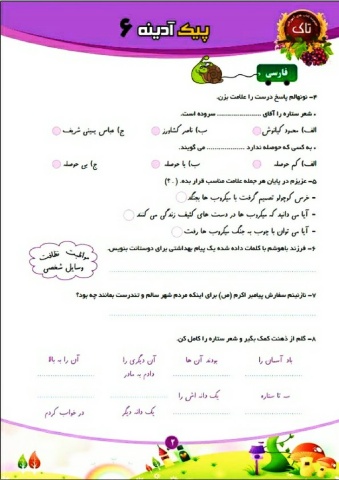 تاک
پیک آدینه ۶
فارسی
۴- نونهالم پاسخ درست را علامت بزن.
• شعر ستاره را آقای ........................ سروده است.
الف) محمود کیانوش
ب) ناصر کشاورز
ج) عباس یمینی شریف
• به کسی که حوصله ندارد ........................ می گویند.
الف) کم حوصله
ب) با حوصله
ج) بی حوصله
۵- عزیزم در پایان هر جمله علامت مناسب قرار بده. (. ؟)
- خرسی کوچولو تصمیم گرفت با میکروب ها بجنگد
- آیا می دانید که میکروب ها در دست های کثیف زندگی می کنند
- آیا می توان با چوب به جنگ میکروب ها رفت
۶- فرزند باهوشم با کلمات داده شده یک پیام بهداشتی برای دوستانت بنویس.
مواظبت نظافت
وسایل شخصی
۷- نازنینم سفارش پیامبر اکرم (ص) برای اینکه مردم شهر سالم و تندرست بمانند چه بود؟
۸- گلم از ذهنت کمک بگیر و شعر ستاره را کامل کن.
باد آسمان را
بودند آن ها
آن دیگری را
دادم به مادر
آن را به بالا
سه تا ستاره
یک دانه اش را
یک دانه دیگر
در خواب کردم
۲